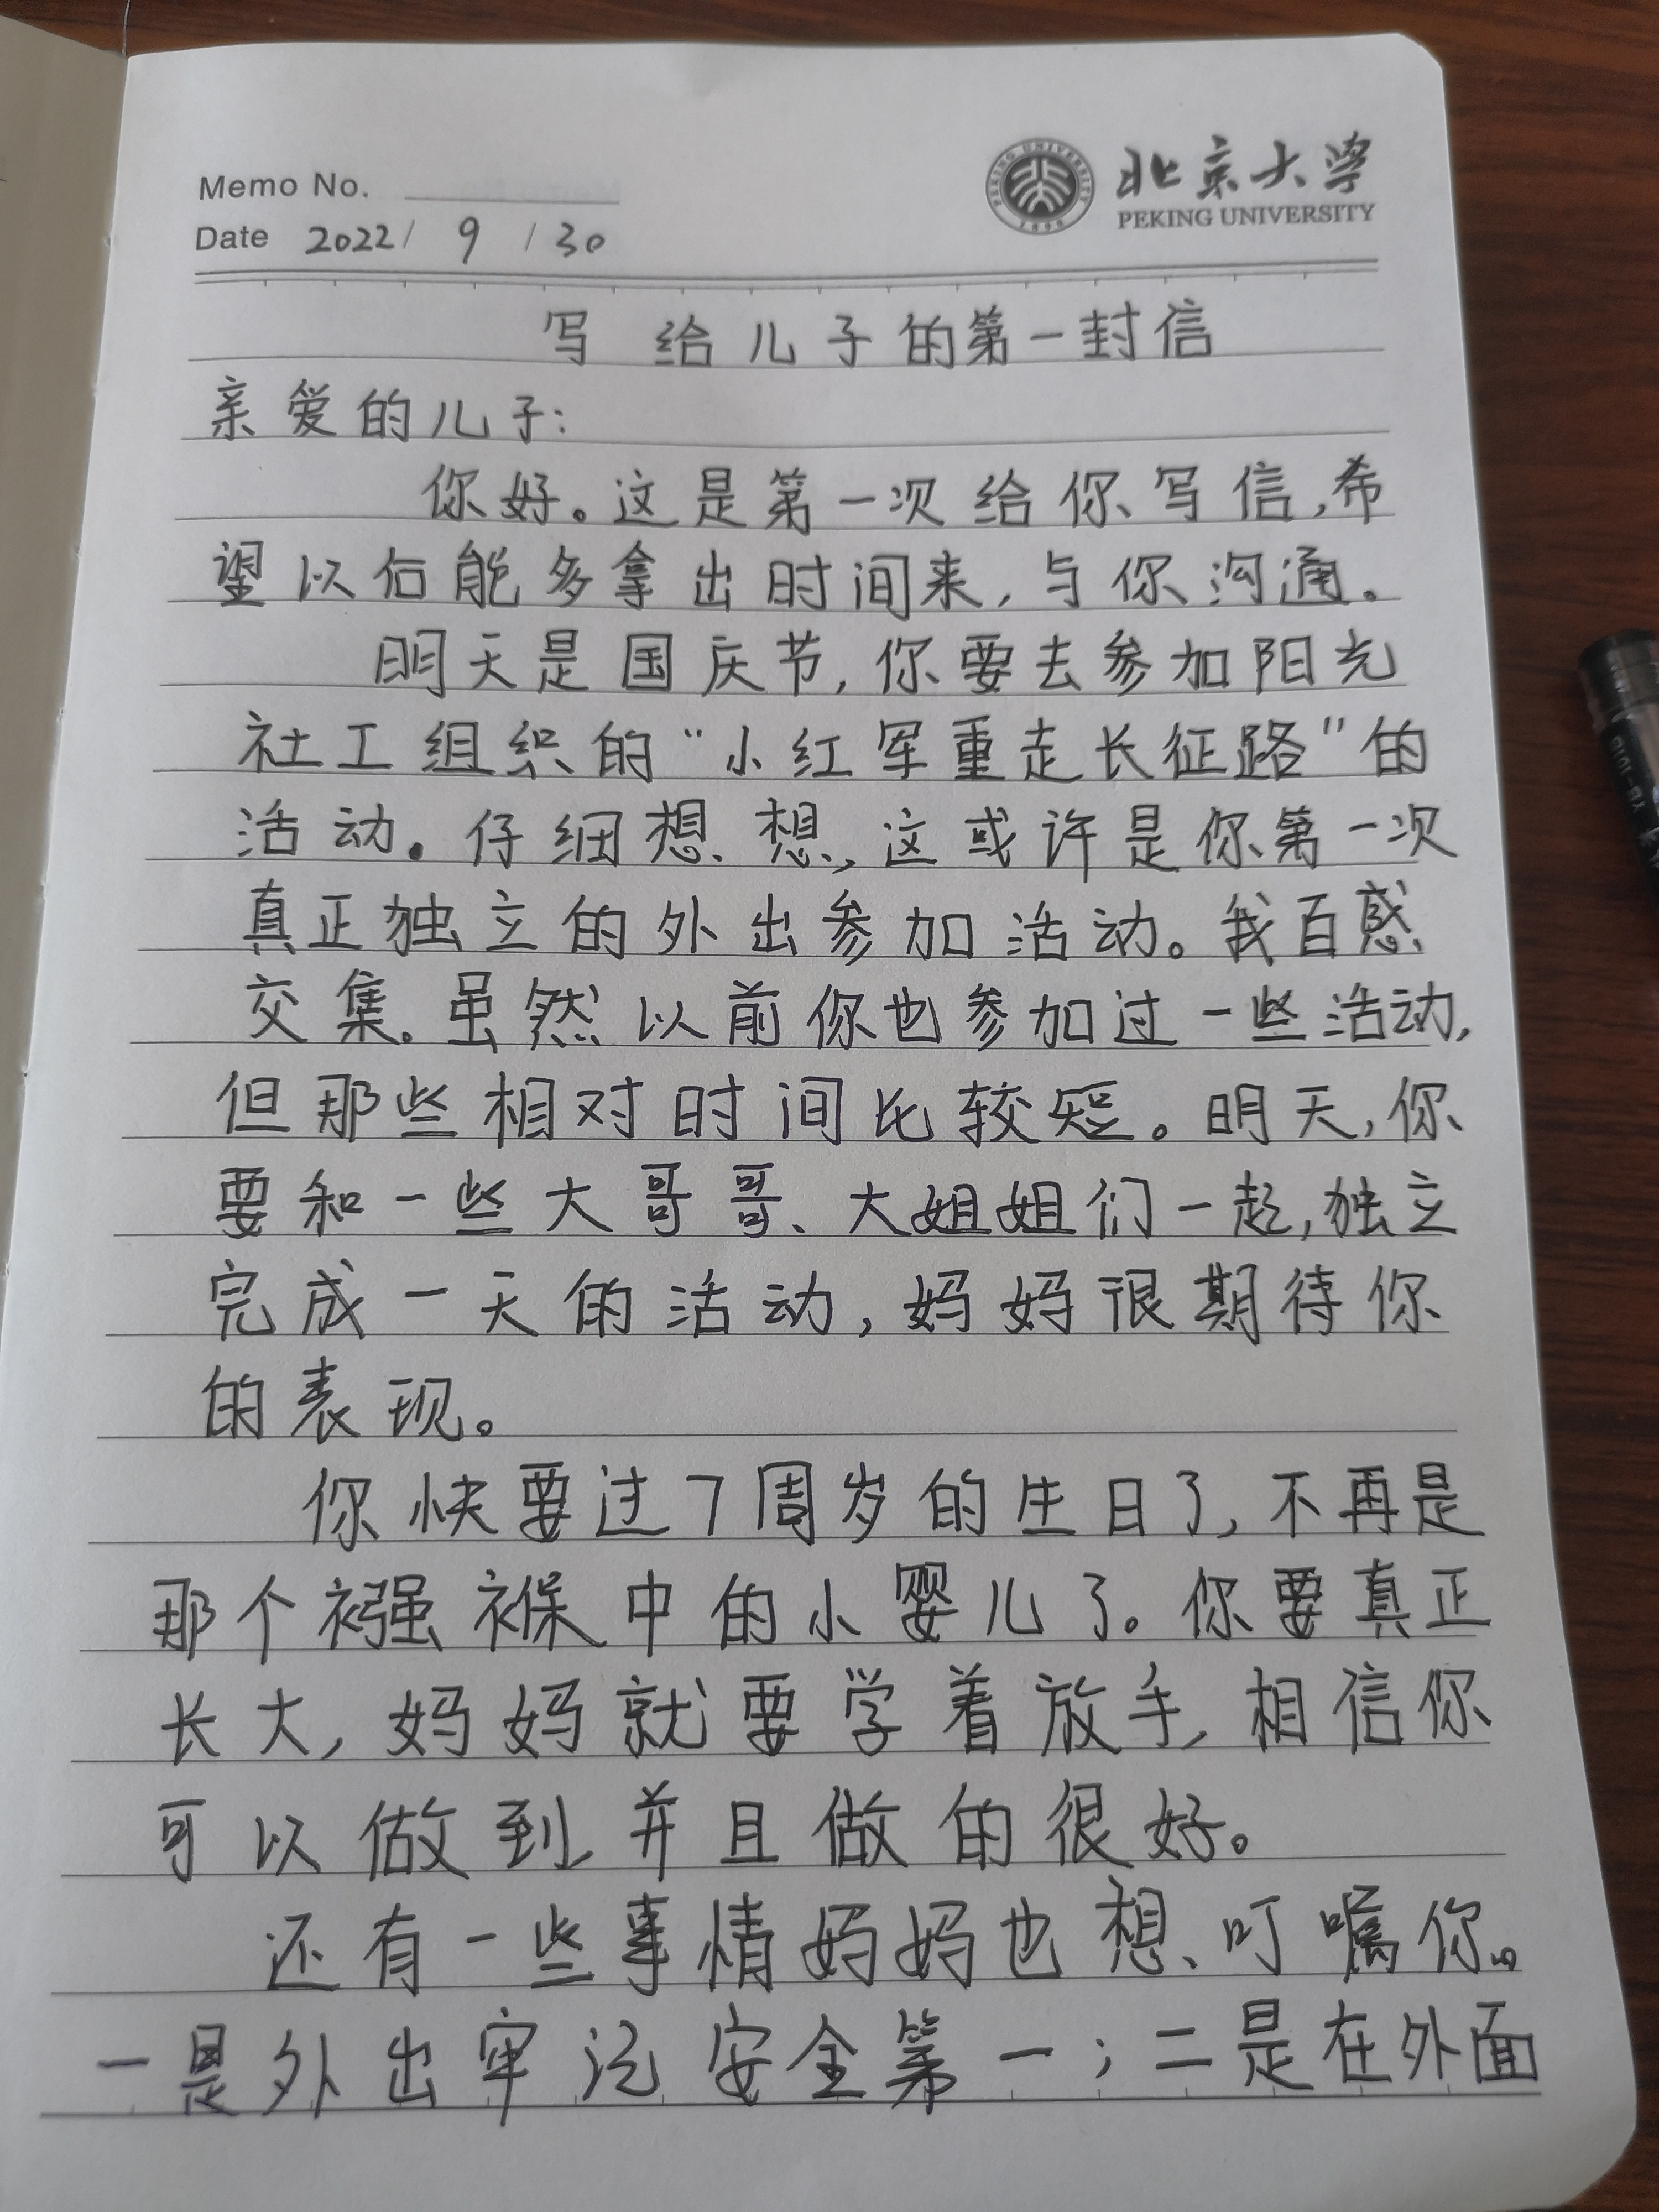 Memo No.
北京大学
PEKING UNIVERSITY
PEKING UNIVERSITY
1898
Date 2022/ 9 / 30
写给儿子的第一封信
亲爱的儿子:
你好。这是第一次给你写信,希
望以后能多拿出时间来,与你沟通。
明天是国庆节,你要去参加阳光
社工组织的“小红军重走长征路”的
活动。仔细想想,这或许是你第一次
真正独立的外出参加活动。我百感
交集。虽然以前你也参加过一些活动,
但那些相对时间比较短。明天,你
要和一些大哥哥、大姐姐们一起,独立
完成一天的活动,妈妈很期待你
的表现。
你快要过7周岁的生日了,不再是
那个襁褓中的小婴儿了。你要真正
长大,妈妈就要学着放手,相信你
可以做到并且做的很好。
还有一些事情妈妈也想叮嘱你。
一是外出牢记安全第一;二是在外面